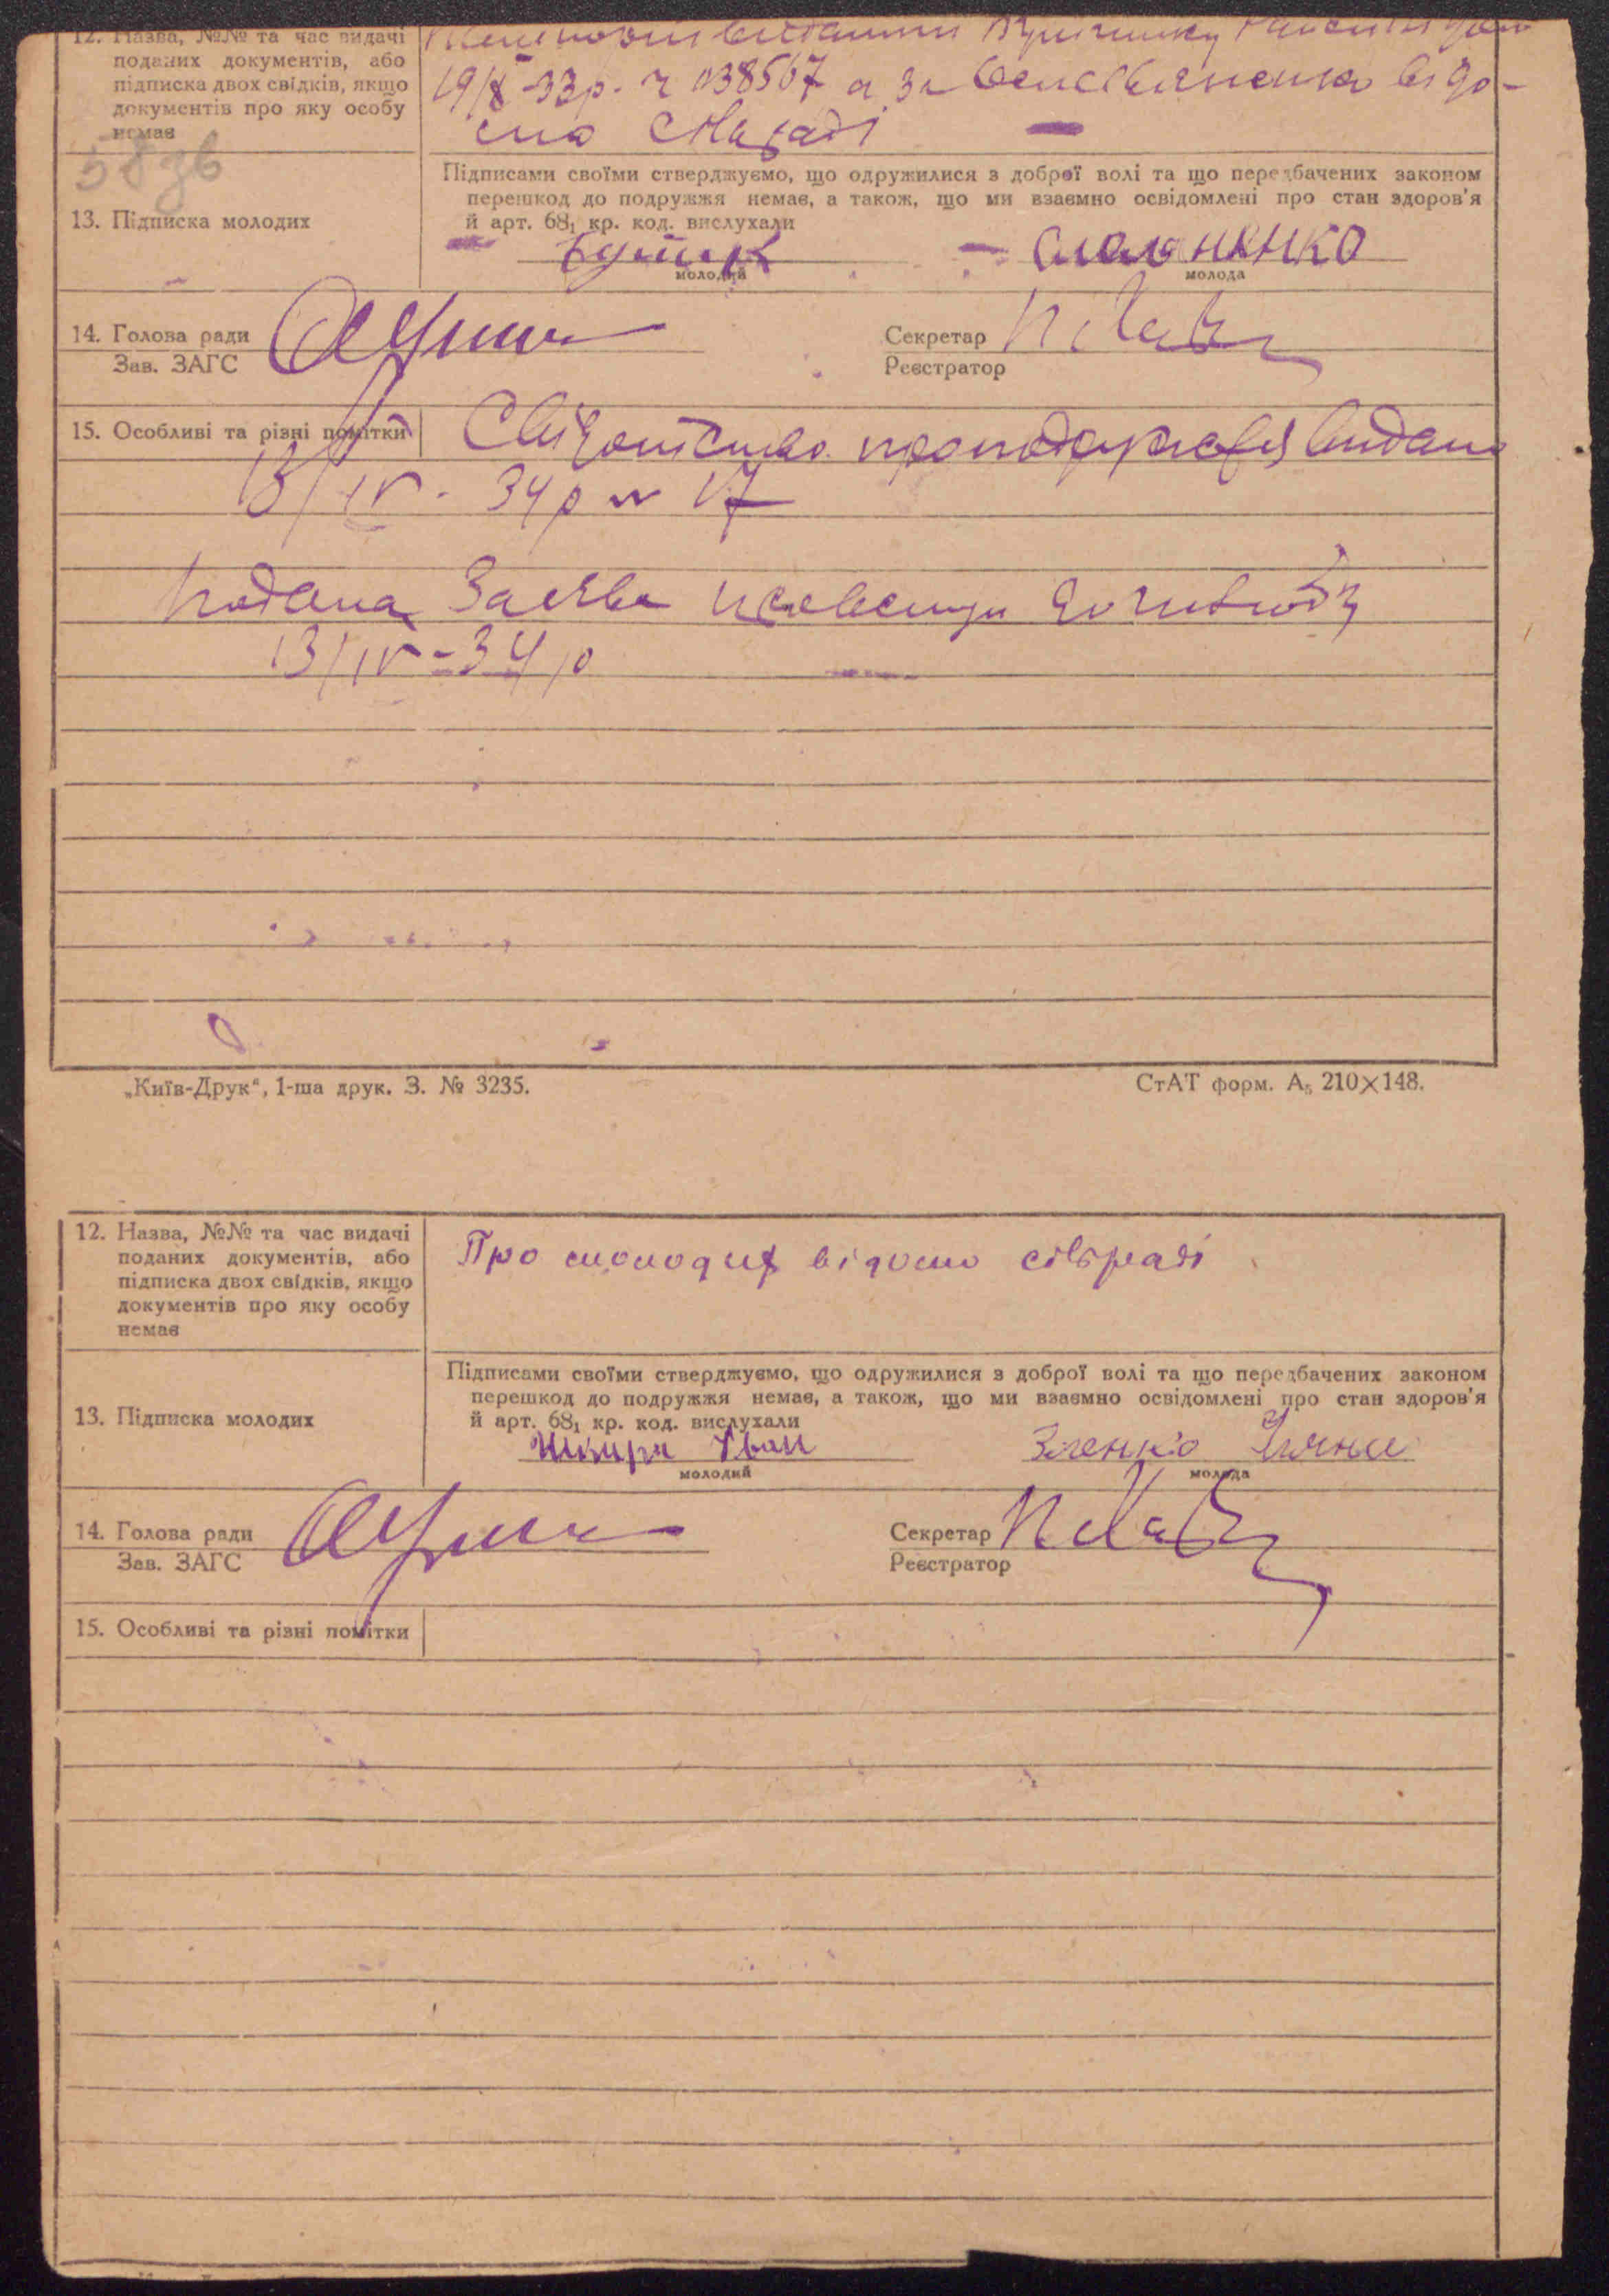 12. Назва, №№ та час видачі
поданих документів, або
підписка двох свідків, якщо
документів про яку особу
немає
19/X-33р. ч 038567 а за відо-
мо с/раді
58 зв
Підписами своїми стверджуємо, що одружилися з доброї волі та що передбачених законом
перешкод до подружжя немає, а також, що ми взаємно освідомлені про стан здоров'я
й арт. 68₁ кр. код. вислухали
13. Підписка молодих
молодий
молода
14. Голова ради
Зав. ЗАГС
Секретар
Реєстратор
15. Особливі та різні помітки
Свідоцтво про подружжя видано
13/IV-34р № 17
Подана Заява
13/IV-34р
„Київ-Друк“, 1-ша друк. З. № 3235.
СтАТ форм. А₅ 210×148.
12. Назва, №№ та час видачі
поданих документів, або
підписка двох свідків, якщо
документів про яку особу
немає
Про молодих відомо сільраді
Підписами своїми стверджуємо, що одружилися з доброї волі та що передбачених законом
перешкод до подружжя немає, а також, що ми взаємно освідомлені про стан здоров'я
й арт. 68₁ кр. код. вислухали
13. Підписка молодих
Шкира Іван
молодий
молода
14. Голова ради
Зав. ЗАГС
Секретар
Реєстратор
15. Особливі та різні помітки